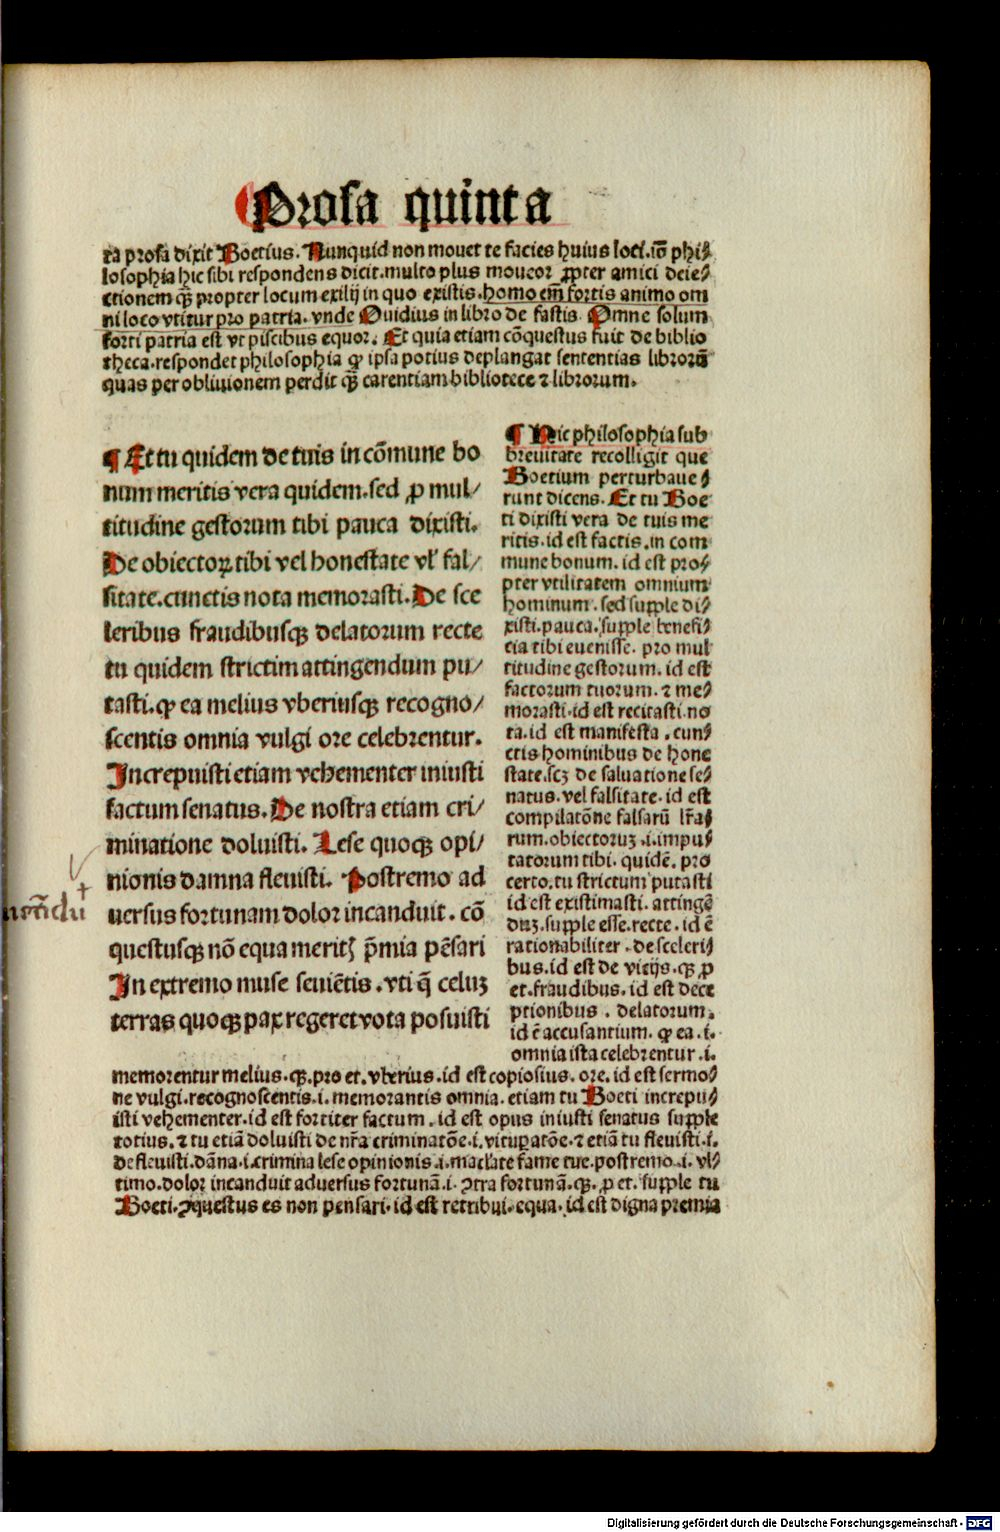 Prosa quinta
ta prosa dixit Boetius. Nunquid non mouet te facies huius loci. iõ phi⸗
losophia hic sibi respondens dicit. multo plus moueor ꝓpter amici deie⸗
ctionem q̃ꝫ propter locum exilij in quo existis. homo em̃ fortis animo om
ni loco vtitur pro patria. vnde Ouidius in libro de fastis Omne solum
forti patria est vt piscibus equor. Et quia etiam cõquestus fuit de biblio
theca. respondet philosophia ꝙ ipsa potius deplangat sententias librorũ
quas per obliuionem perdit q̃ꝫ carentiam bibliotece ⁊ librorum.
¶ Et tu quidem de tuis in cõmune bo
num meritis vera quidem. sed ꝓ mul/
titudine gestorum tibi pauca dixisti.
De obiectoꝝ tibi vel honestate vl' fal/
sitate. cunctis nota memorasti. De sce
leribus fraudibusqꝫ delatorum recte
tu quidem strictim attingendum pu/
tasti. ꝙ ea melius vberiusqꝫ recogno/
scentis omnia vulgi ore celebrentur.
Increpuisti etiam vehementer iniusti
factum senatus. De nostra etiam cri/
minatione doluisti. Lese quoqꝫ opi/
nionis damna fleuisti. Postremo ad
uersus fortunam dolor incanduit. cõ
questusqꝫ nõ equa meritꝭ p̃mia pẽsari
In extremo muse seuiẽtis. vti q̃ celuꝫ
terras quoqꝫ pax regeret vota posuisti
¶ Hic philosophia sub
breuitate recolligit que
Boetium perturbaue⸗
runt dicens. Et tu Boe
ti dixisti vera de tuis me
ritis. id est factis. in com
mune bonum. id est pro⸗
pter vtilitatem omnium
hominum. sed supple di⸗
xisti. pauca. supple benefi⸗
cia tibi euenisse. pro mul
titudine gestorum. id est
factorum tuorum. ⁊ me⸗
morasti. id est recitasti. no
ta. id est manifesta. cun⸗
ctis hominibus de hone
state. scꝫ de saluatione se⸗
natus. vel falsitate. id est
compilatõne falsarũ lr̃a⸗
rum. obiectoruꝫ .i. impu⸗
tatorum tibi. quidẽ. pro
certo. tu strictum putasti
id est existimasti. attingẽ
duꝫ. supple esse. recte. id ẽ
rationabiliter. de sceleri⸗
bus. id est de vicijs. qꝫ ꝓ
et. fraudibus. id est dece
ptionibus. delatorum.
id ẽ accusantium. ꝙ ea .i.
omnia ista celebrentur .i.
memorentur melius. qꝫ. pro et. vberius. id est copiosius. ore. id est sermo⸗
ne vulgi. recognoscentis. i. memorantis omnia. etiam tu Boeti increpu⸗
isti vehementer. id est fortiter factum. id est opus iniusti senatus supple
totius. ⁊ tu etiã doluisti de nr̃a criminatõe. i. vituꝑatõe. ⁊ etiã tu fleuisti. i.
defleuisti. dãna. i. crimina lese opinionis. i. maclate fame tue. postremo. i. vl⸗
timo. dolor incanduit aduersus fortunã. i. ꝯtra fortunã. qꝫ. ꝓ et. supple tu
Boeti. ꝯquestus es non pensari. id est retribui. equa. id est digna premia
Digitalisierung gefördert durch die Deutsche Forschungsgemeinschaft - DFG